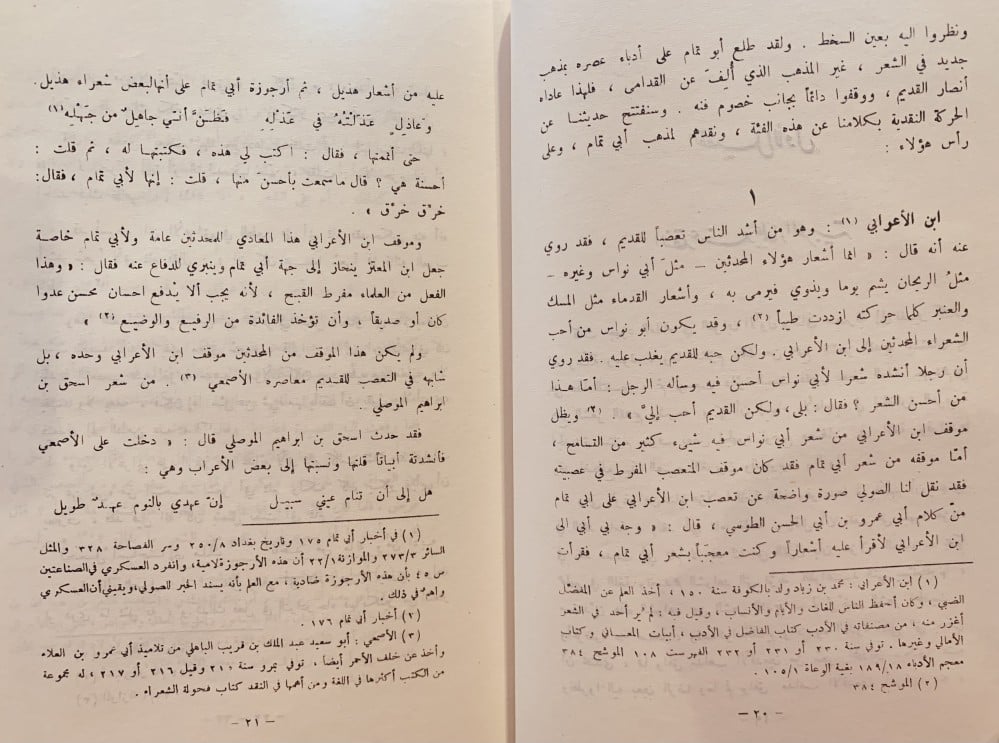 ونظروا اليه بعين السخط . ولقد طلع أبو تمام على أدباء عصره بمذهب
جديد في الشعر ، غير المذهب الذي أُلِفَ عن القدامى ، فلهذا عاداه
أنصار القديم ، ووقفوا دائماً بجانب خصوم فنه . وسنفتتح حديثنا عن
الحركة النقدية بكلامنا عن هذه الفئة ، ونقدهم لمذهب أبي تمام ، وعلى
رأس هؤلاء :
١
ابن الأعرابي (١) : وهو من أشد الناس تعصباً للقديم ، فقد روي
عنه أنه قال : « انما أشعار هؤلاء المحدثين – مثلَ أبي نواس وغيره –
مثلُ الريحان يشم يوما ويذوي فيرمى به ، وأشعار القدماء مثل المسك
والعنبر كلما حركته ازددت طيباً (٢) ، وقد يكون أبو نواس من أحب
الشعراء المحدثين إلى ابن الأعرابي . ولكن حبه للقديم يغلب عليه . فقد روي
أن رجلا أنشده شعرا لأبي نواس أحسن فيه وسأله الرجل : أمّا هذا
من أحسن الشعر ؟ فقال : بلى ، ولكن القديم أحب إليَّ » (٢) ويظل
موقف ابن الأعرابي من شعر أبي نواس فيه شيء كثير من التسامح ،
أمّا موقفه من شعر أبي تمام فقد كان موقف المتعصب المفرط في عصبيته
فقد نقل لنا الصولي صورة واضحة عن تعصب ابن الأعرابي على ابي تمام
من كلام أبي عمرو بن أبي الحسن الطوسي ، قال : « وجه بي أبي الى
ابن الأعرابي لأقرأ عليه أشعاراً وكنت معجَباً بشعر أبي تمام ، فقرأت
(١) ابن الأعرابي : محمد بن زياد ولد بالكوفة سنة ١٥٠ ، أخذ العلم عن المفضل
الضبي ، وكان أحفظ الناس للغات والأيام والأنساب ، وقيل فيه : لم يُر أحد في الشعر
أغزر منه ، من مصنفاته في الأدب كتاب الفاضل في الأدب ، أبيات المعاني وكتاب
الأمالي وغيرها . توفي سنة ٢٣٠ أو ٢٣١ أو ٢٣٢ الفهرست ١٠٨ الموشح ٣٨٤
معجم الأدباء ١٨٩/١٨ بغية الوعاة ١٠٥/١ .
(٢) الموشح ٣٨٤
– ٢٠ –
عليه من أشعار هذيل ، ثم أرجوزة أبي تمام على أنها لبعض شعراء هذيل .
وعاذلٍ عذَلتُهُ في عَذْلِهِ فظَنَّ أنّي جاهلٌ من جَهْلِهِ (١)
حتى أتممتها ، فقال : اكتب لي هذه ، فكتبتها له ، ثم قلت :
أحسنة هي ؟ قال ما سمعت بأحسنَ منها ، قلت : إنها لأبي تمام ، فقال :
خرِّق خرِّق » .
وموقف ابن الأعرابي هذا المعادي للمحدثين عامة ولأبي تمام خاصة
جعل ابن المعتز ينحاز إلى جهة أبي تمام وينبري للدفاع عنه فقال : « وهذا
الفعل من العلماء مفرط القبح ، لأنه يجب ألا يُدفع احسان محسن عدوا
كان أو صديقاً ، وأن تؤخذ الفائدة من الرفيع والوضيع (٢) »
ولم يكن هذا الموقف من المحدثين موقف ابن الأعرابي وحده ، بل
شابهه في التعصب للقديم معاصره الأصمعي (٣) . من شعر اسحق بن
ابراهيم الموصلي .
فقد حدث اسحق بن ابراهيم الموصلي قال : « دخلت على الأصمعي
فأنشدته أبياتاً قلتها ونسبتها إلى بعض الأعراب وهي :
هل إلى أن تنام عيني سبيل إنّ عهدي بالنوم عهدٌ طويل
(١) في أخبار أبي تمام ١٧٥ وتاريخ بغداد ٢٥٠/٨ وسر الفصاحة ٣٢٨ والمثل
السائر ٢٧٣/٣ والموازنة ٢٢/١ أن هذه الأرجوزة لامية ، وانفرد العسكري في الصناعتين
ص ٤٥ بأن هذه الأرجوزة ضادية ، مع العلم بأنه يسند الخبر للصولي ، ويقيني أن العسكري
واهمٌ في ذلك .
(٢) أخبار أبي تمام ١٧٦ .
(٣) الأصمعي : أبو سعيد عبد الملك بن قريب الباهلي من تلاميذ أبي عمرو بن العلاء
وأخذ عن خلف الأحمر أيضا . توفي بمرو سنة ٢١٠ وقيل ٢١٦ أو ٢١٧ ، له مجموعة
من الكتب أكثرها في اللغة ومن أهمها في النقد كتاب فحولة الشعراء .
– ٢١ –